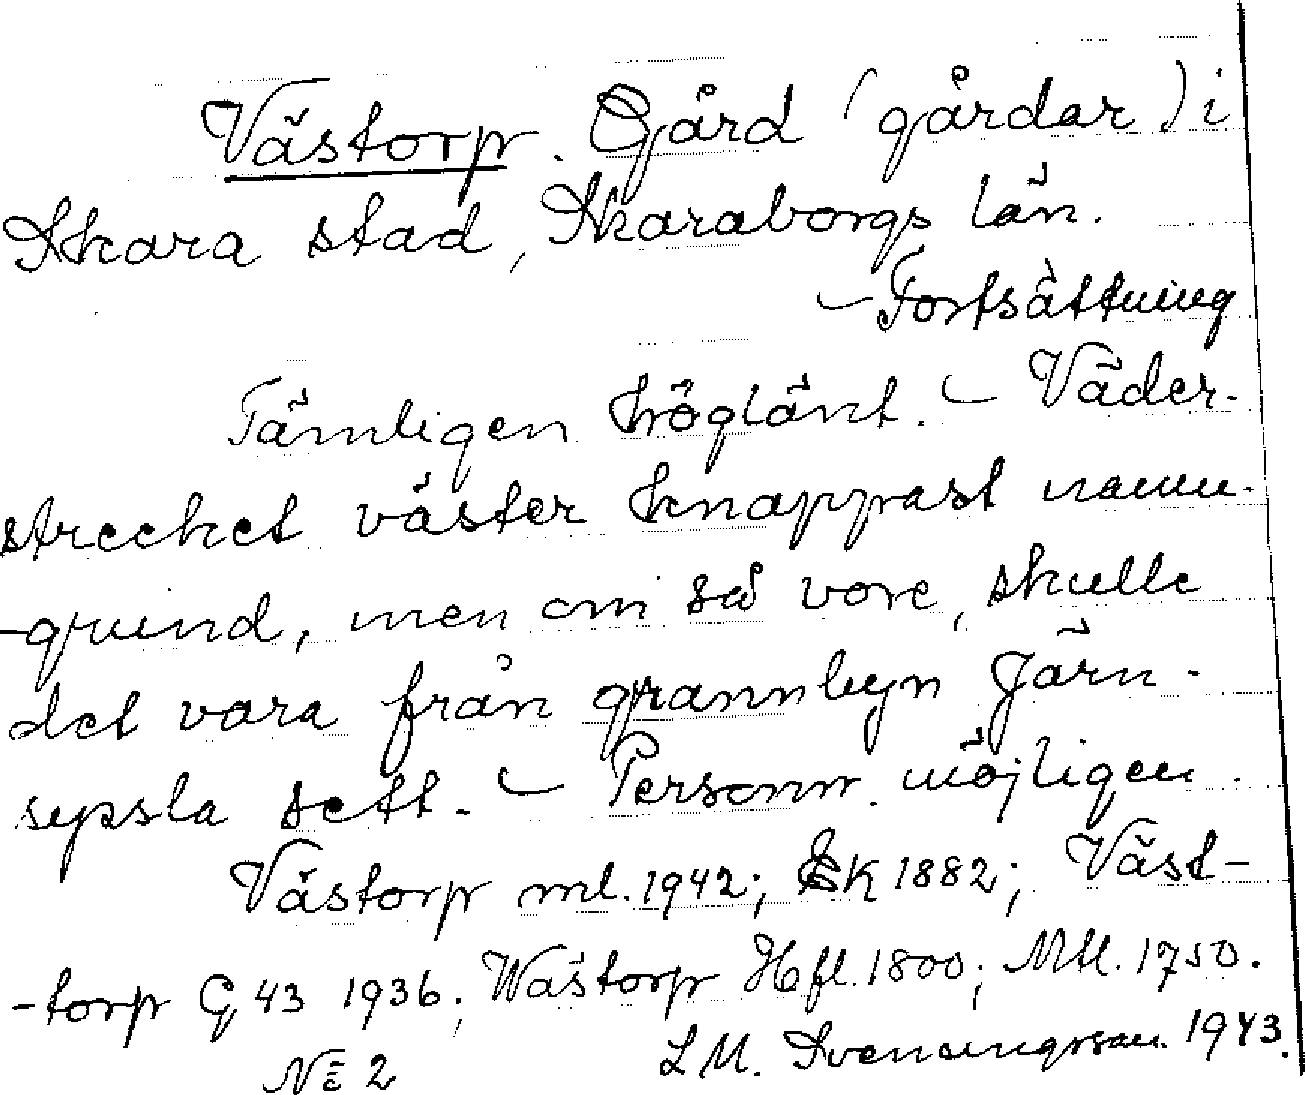 Västorp. Gård (gårdar) i
Skara stad, Skaraborgs län.
– Fortsättning
Tämligen höglänt. – Väder-
strecket väster knappast namn-
-grund, men om så vore, skulle
det vara från grannbyn Järn-
sysla sett. – Personn. möjligen.
Västorp ml. 1942; EK 1882; Väst-
-torp G 43 1936; Wästorp Hfl. 1800; Mtl. 1750.
No 2 L M. Svenungsson. 1943.